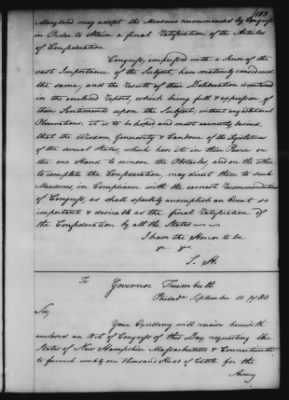 183
Maryland may adopt the Measures recommended by Congress
in Order to obtain a final Ratification of the Articles
of Confederation
Congress, impressed with a Sense of the
vast Importance of the Subject, have maturely considered
the same, and the Result of their Deliberation is contained
in the enclosed Report, which being full & expressive of
their Sentiments upon the Subject, without any additional
Observations: it is to be hoped and most earnestly desired,
that the Wisdom, Generosity & Candour of the Legislatures
of the several States, which have it in their Power on
the one Hand to remove the Obstacles, and on the other
to complete the Confederation, may direct them to such
Measures in Compliance with the earnest Recommendations
of Congress, as shall speedily accomplish an Event so
important & desirable as the final Ratification of
the Confederation by all the States
I have the Honor to be
&c &c
S. H.
To
Governor Trumbull
Philada September 11 1780
Sir,
Your Excellency will receive herewith
enclosed an Act of Congress of this Day, requesting the
States of New Hampshire Massachusetts & Connecticut
to furnish weekly one Thousand Head of Cattle for the
Army